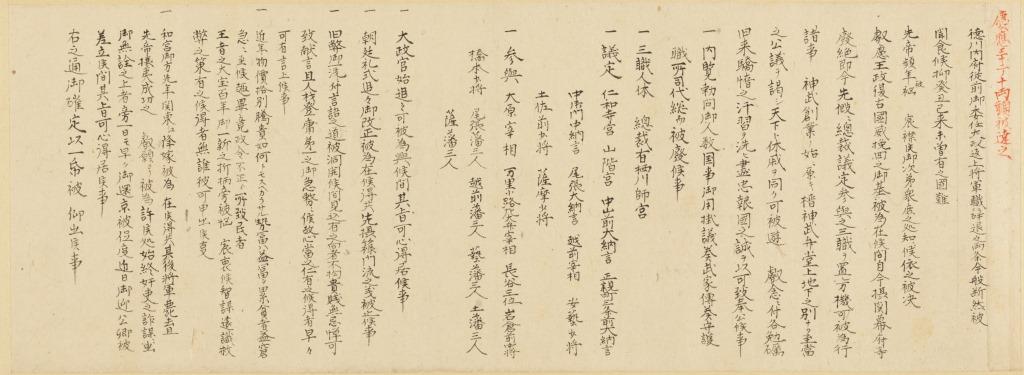 慶應三年丁卯
徳川内府従前御委任大政返上将軍職辞退之両条今般断然被
聞食候抑癸丑已来未曽有之国難
先帝頻年被悩 宸襟候御次第衆庶之処知候依之被決
叡慮王政復古国威挽回之御基被為在候間自今摂関幕府等
廃絶即今先仮ニ総裁議定参與之三職ヲ置レ万機可被為行
諸事 神武創業ノ始ニ原キ搢紳武弁堂上地下之別ナク至當
之公議ヲ竭シ天下ト休戚ヲ同ク可被遊 叡念ニ付各勉励
旧来驕惰之汗習ヲ洗ヒ盡忠報國之誠ヲ以可致奉公候事
一 内覧勅問御人数国事御用掛議奏武家傳奏守護
職所司代総而被廃候事
一 三職人体 總裁有栖川帥宮
一 議定 仁和寺宮 山階宮 中山前大納言 正親町三条前大納言
中御門中納言 尾張大納言 越前宰相 安藝少将
土佐前少将 薩摩少将
一 参與 大原宰相 万里小路右大弁宰相 長谷三位 岩倉前中将
橋本少将 尾張藩三人 越前藩三人 藝藩三人 土藩三人
薩藩三人
一 大政官始追々可被為興候間其旨可心得居候事
一 朝廷礼式追々御改正可被為在候得共先摂籙門流之義被止候事
一 旧弊御洗ニ付言語之道被洞開候間見込有之向者不拘貴賤無忌憚可
致献言且人材登庸第一之御急務ニ候故心當之仁有之候得者早々
可有言上候事
一 近年物價格別騰貴如何トモスヘカラサル勢富ハ益富ヲ累貧者益窘
急ニ至候趣畢竟政令不正所致民者
王者之大宝百事御一新之折柄旁被悩 宸衷候智謀遠識救
弊之策有之候得者無誰彼可申出候事
一 和宮御方先年関東江降嫁被為在候得共其後将軍薨去且
先帝攘夷成功之 叡願ヨリ被為許候処始終奸吏之詐謀出
御無詮之上者旁一日モ早ク御還京被促度近日御迎公卿被
差立候間其旨可心得居候事
右之通御確定以一帋被 仰出候事